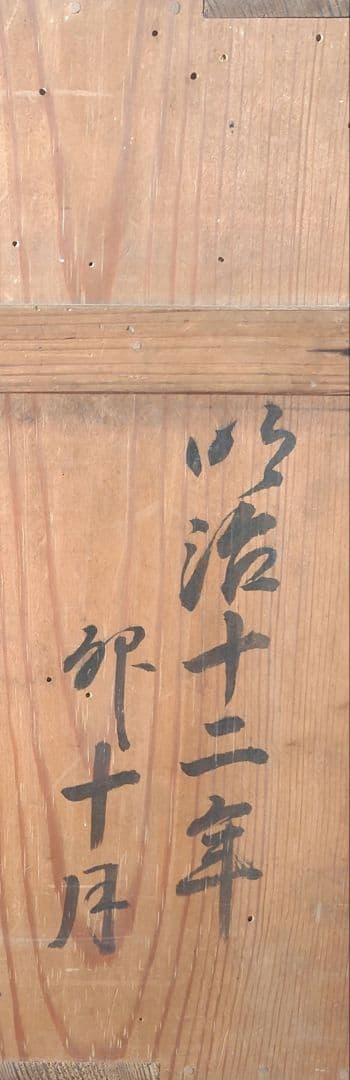 明治十二年
卯十月